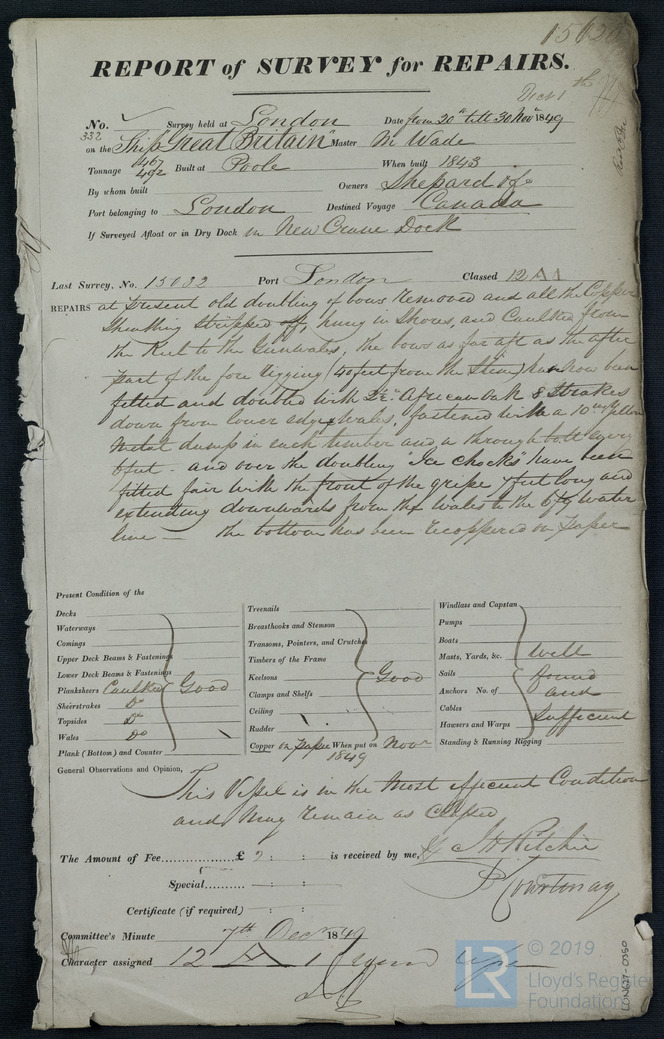 REPORT OF SURVEY for REPAIRS.
Decr 1th
No. 332 Survey held at London Date from 20th till 30 Novr 1849
on the Ship "Great Britain" Master M Wade
Tonnage 467 492 Built at Poole When built 1843
By whom built Owners Shepard & Co
Port belonging to London Destined Voyage Canada
If Surveyed Afloat or in Dry Dock in New Crane Dock
Last Survey, No. 15032 Port London Classed 12 A 1
REPAIRS at present old doubling of bows removed and all the Copper
Sheathing stripped off, hung in Shores, and Caulked from
the Keel to the Gunwales, the bows as far aft as the after
part of the fore rigging (40 feet from the Stem) has now been
fitted and doubled with 2½ in African Oak 8 Strakes
down from lower edge wales, fastened with a 10 in yellow
metal dump in each timber and a through bolt every
6 feet - and over the doubling "Ice chocks" have been
fitted fair with the front of the gripe 7 feet long and
extending downwards from the wales to the water
line — the bottom has been recoppered on paper
Present Condition of the
Decks
Waterways
Comings
Upper Deck Beams & Fastenings
Lower Deck Beams & Fastenings
Planksheers Caulked Good
Sheerstrakes Do
Topsides Do
Wales Do
Plank (Bottom) and Counter
Treenails
Breasthooks and Stemson
Transoms, Pointers, and Crutches
Timbers of the Frame
Keelsons Good
Clamps and Shelfs
Ceiling
Rudder
Copper on paper When put on Novr 1849
Windlass and Capstan
Pumps
Boats
Masts, Yards, &c. Well
Sails found
Anchors No. of and
Cables
Hawsers and Warps Sufficient
Standing & Running Rigging
General Observations and Opinion,
This Vessel is in the most efficient Condition
and may remain as Classed
The Amount of Fee £ 2 : : is received by me, J H Ritchie
Special — : :
P Courtenay
Certificate (if required) — : :
Committee's Minute 7th Decr 1849
Character assigned 12 A 1
LR © 2019
Lloyd's Register
Foundation